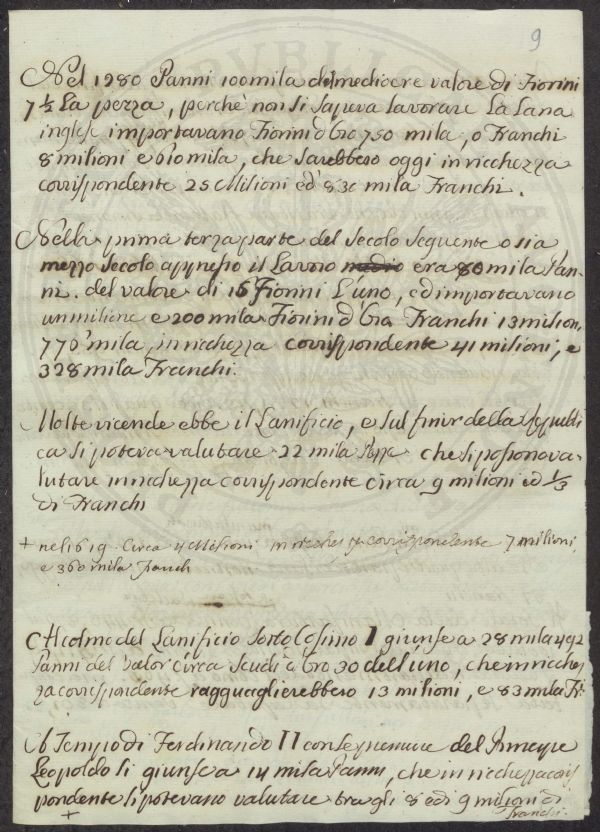 9
Nel 1280 Panni 100mila del mediocre valore di Fiorini
7½ La pezza, perchè non si sapeva lavorare La Lana
inglese importavano Fiorini d'Oro 750 mila, o Franchi
8 milioni e 610 mila, che sarebbero oggi in ricchezza
corrispondente 25 Milioni ed 830 mila Franchi.
Nella prima terza parte del Secolo Seguente o sia
mezzo secolo appresso il Lavoro era 80 mila Pan-
ni. del valore di 15 Fiorini L'uno, ed importavano
un milione e 200 mila Fiorini d'Oro Franchi 13 milion.
776 mila, in ricchezza corrispondente 41 milioni, e
328 mila Franchi.
Molte vicende ebbe il Lanificio, e sul finir della Republi
ca si poteva valutare 22 mila Pezze che si possono va-
lutare in ricchezza corrispondente circa 9 milioni ed 1/3
di Franchi
+ nel 1619. Circa 4 Milioni in ricchezza corrispondente 7 milioni,
e 360 mila franch
Al colmo del Lanificio sotto Cosimo I giunse a 28 mila 492
Panni del valor circa Scudi d'Oro 30 dell'uno, che in ricchez
za corrispondente ragguaglierebbero 13 milioni, e 83 mila Fr.
A Tempo di Ferdinando II del Principe
Leopoldo si giunse a 14 mila Panni, che in ricchezza corris
pondente si potevano valutare tra gli 8 ed i 9 milioni di
+ franchi.